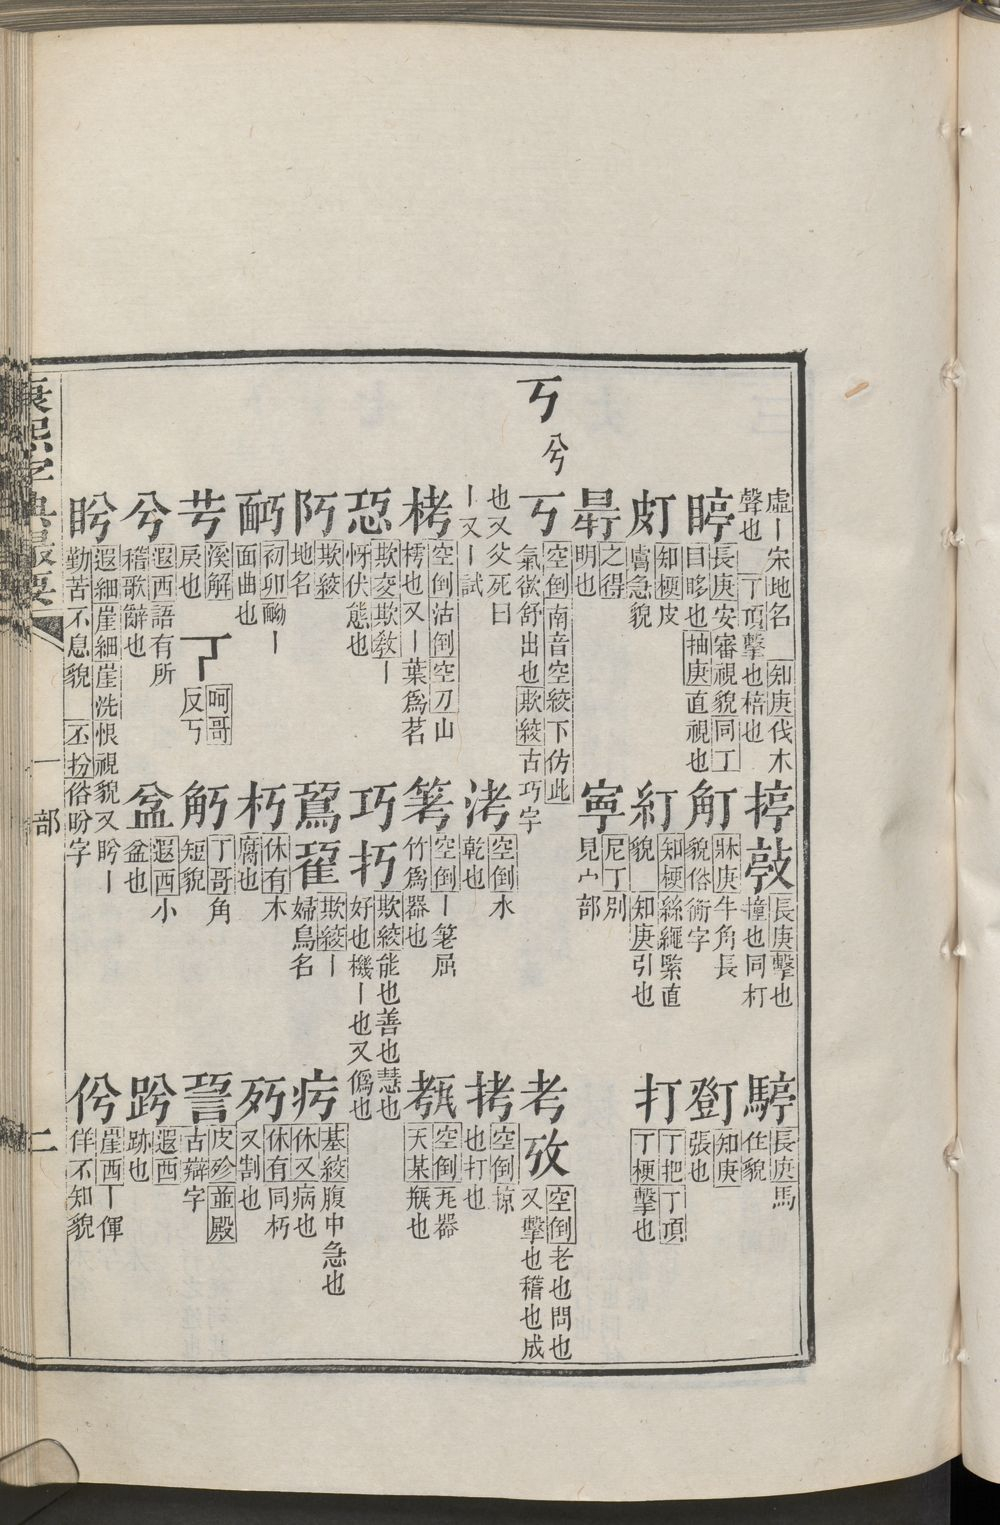 虛丨宋地名 知庚伐木
聲也 丁頂擊也棓也
揨敼 長庚擊也
撞也同朾
長庚馬
住貌
長庚安審視貌同丁
目眵也抽庚直視也
牀庚牛角長
貌俗衝字
知庚
張也
知梗皮
膚急貌
之得
紅 知梗絲繩緊直
貌 知庚引也
打 丁把丁頂
丁梗擊也
明也
寧 尼丁別
見宀部
丂 兮
丂 空倒南音空綏下仿此
氣欲舒出也欺綏古巧字
考攷 空倒老也問也
又擊也稽也成
也又父死曰
丨又丨試
洘 空倒水
乾也
拷 空倒掠
也打也
栲 空倒沽倒空刀山
樗也又丨葉爲茗
空倒丨筶屈
竹爲器也
空倒瓦器
天某瓶也
欺交欺敎丨
忬伏態也
巧 欺綏能也善也慧也
好也機丨也又僞也
欺綏
地名
欺綏丨
婦鳥名
疞 基綏腹中急也
休又病也
面曲也
朽 休有木
腐也
休有同朽
又割也
溪解
戾也
呵哥
反丂
丁哥角
短貌
皮殄並殿
古辯字
兮 遐西語有所
稽歌辭也
盆 遐西小
盆也
遐西
跡也
盻 遐細崖細崖洗恨視貌又盻丨
勤苦不息貌 丕扮俗盼字
崖西丨倱
佯不知貌
康熙字典最要
一部
二